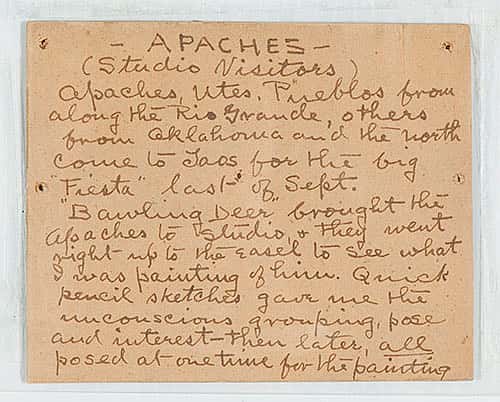 - APACHES -
(Studio Visitors)
Apaches, Utes, Pueblos from
along the Rio Grande, others
from Oklahoma and the north
come to Taos for the big
"Fiesta" last of Sept.
"Bawling Deer" brought the
Apaches to studio, & they went
right up to the easel to see what
I was painting of him. Quick
pencil sketches gave me the
unconscious grouping, pose
and interest - then later, all
posed at one time for the painting